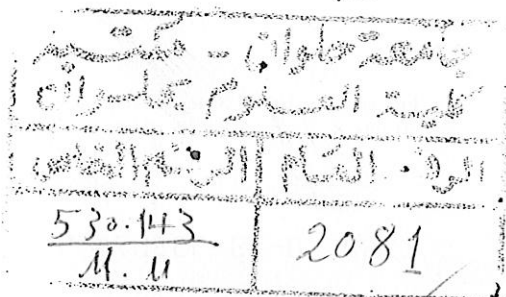 جامعة حلوان - مكتبة
كلية العلوم بحلوان
الرقم العام الرقم الخاص
2081 530.143
M. M